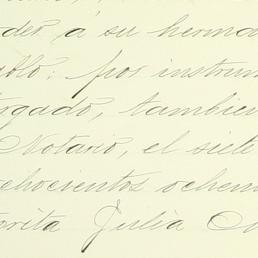 der á su herma
blo: por instrum
rgado, tambien
Notario, el siete
chocientos ochen
orita Julia